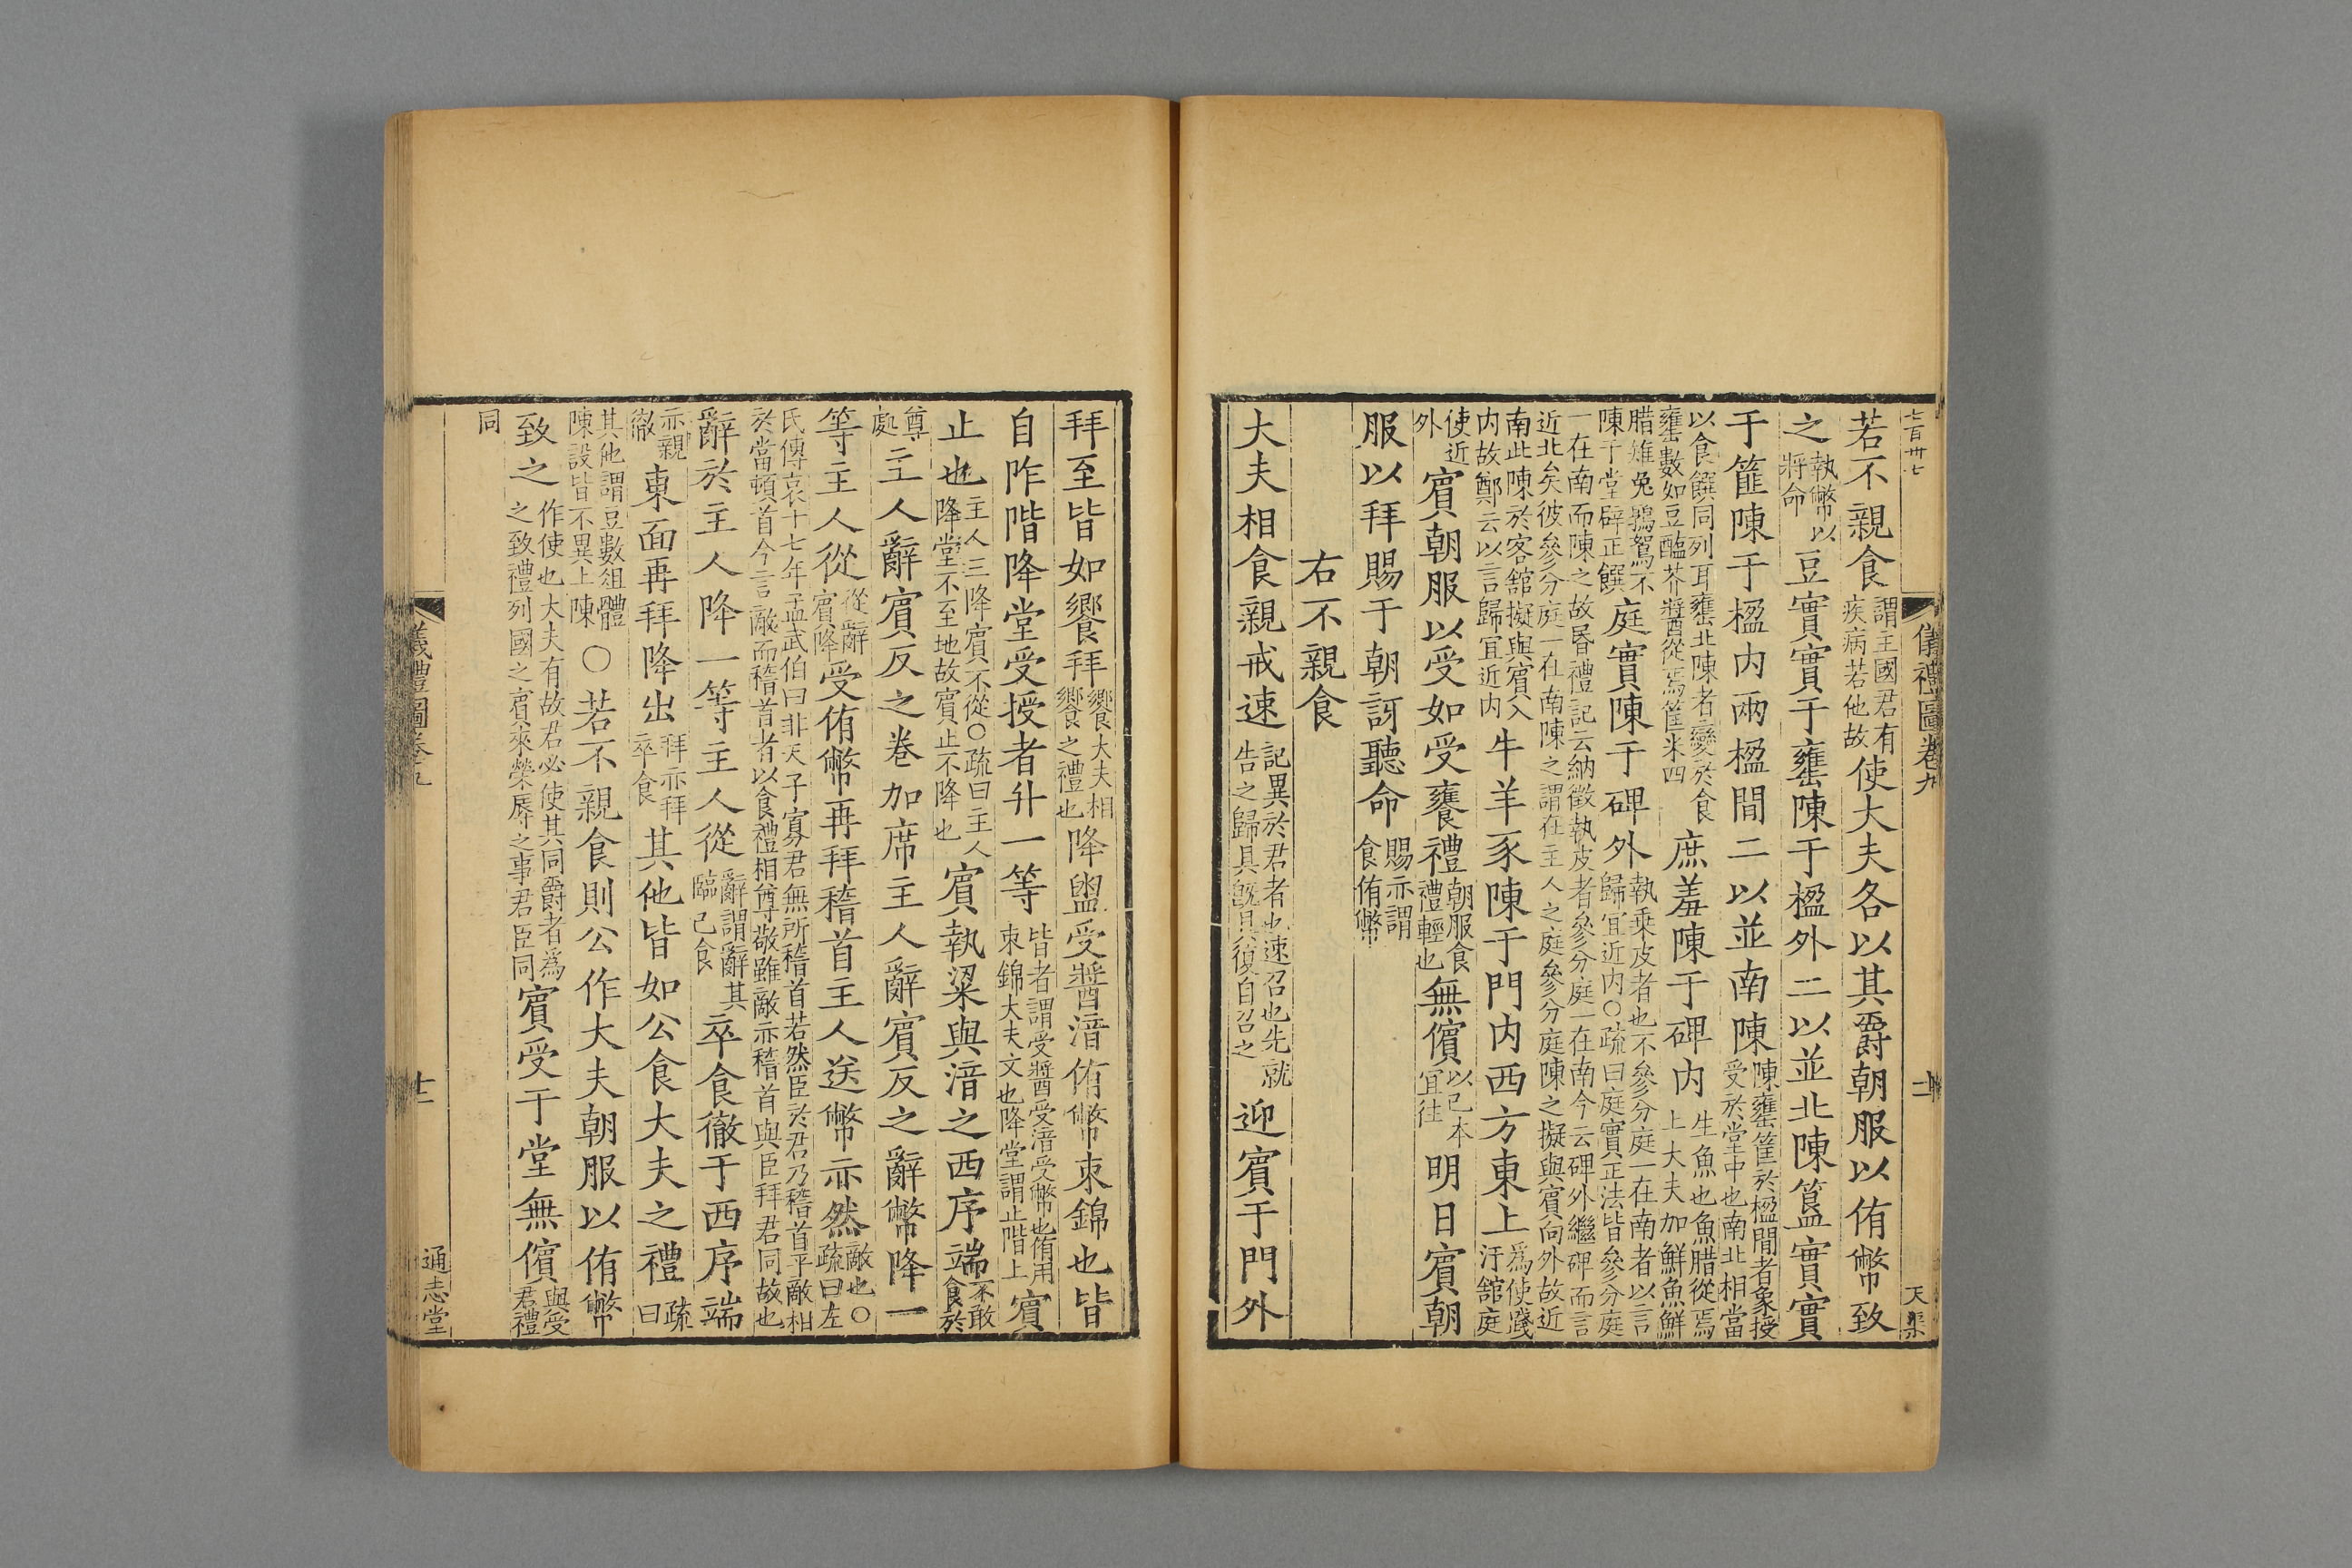 七百卅七
儀禮圖卷九
十一
天渠
若不親食謂主國君有疾病若他故使大夫各以其爵朝服以侑幣致
之執幣以將命豆實實于罋陳于楹外二以並北陳簋實實
于篚陳于楹内兩楹間二以並南陳陳罋筐於楹間者象授受於堂中也南北相當
以食饌同列耳罋北陳者變於食罋數如豆醢芥醬從焉筐米四庶羞陳于碑内生魚也魚腊從焉上大夫加鮮魚鮮
腊雉兔鶉鴽不陳于堂辟正饌庭實陳于碑外執乗皮者也不參分庭一在南者以言歸宜近内○疏曰庭實正法皆參分庭
一在南而陳之故昏禮記云納徵執皮者參分庭一在南今云碑外繼碑而言近北矣彼參分庭一在南陳之謂在主人之庭參分庭陳之擬與賓向外故近
南此陳於客舘擬與賓入内故鄭云以言歸宜近内牛羊豕陳于門内西方東上爲使踐汙舘庭
使近外賓朝服以受如受饔禮朝服食禮輕也無儐以己本宜往明日賓朝
服以拜賜于朝訝聽命賜亦謂食侑幣
右不親食
大夫相食親戒速記異於君者也速召也先就告之歸具既具復自召之迎賓于門外
拜至皆如饗拜饗大夫相饗之禮也降盥受醬湆侑幣束錦也皆
自阼階降堂受授者升一等皆者謂受醬受湆受幣也侑用束錦大夫文也降堂謂止階上賓
止也主人三降賓不從○疏曰主人降堂不至地故賓止不降也賓執粱與湆之西序端不敢食於
尊處主人辭賓反之卷加席主人辭賓反之辭幣降一
等主人從從辭賓降受侑幣再拜稽首主人送幣亦然敵也○疏曰左
氏傳哀十七年孟武伯曰非天子寡君無所稽首若然臣於君乃稽首平敵相於當頓首今言敵而稽首者以食禮相尊敬雖敵亦稽首與臣拜君同故也
辭於主人降一等主人從辭謂辭其臨己食卒食徹于西序端
亦親徹東面再拜降出拜亦拜卒食其他皆如公食大夫之禮疏曰
其他謂豆數俎體陳設皆不異上陳○若不親食則公作大夫朝服以侑幣
致之作使也大夫有故君必使其同爵者爲之致禮列國之賓來榮辱之事君臣同賓受于堂無儐與受君禮
同
儀禮圖卷九
十一
通志堂